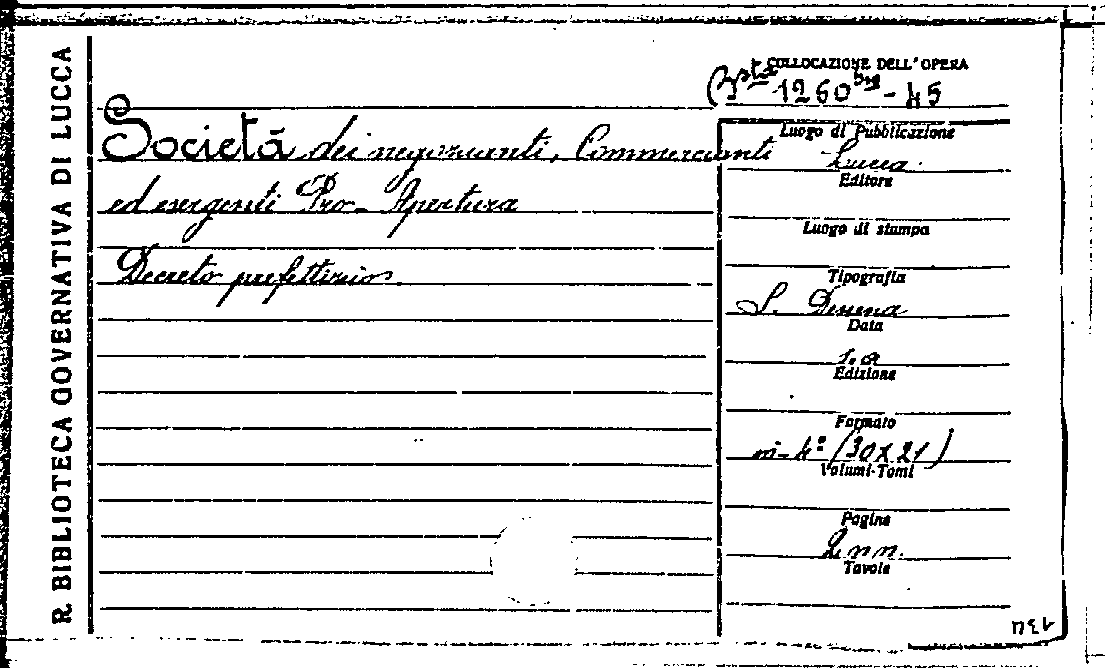 R. BIBLIOTECA GOVERNATIVA DI LUCCA
COLLOCAZIONE DELL'OPERA
Bsta 1260 bis - 45
Società dei negozianti, Commercianti
ed esergenti Pro-Apertura
Decreto prefettizio.
Luogo di Pubblicazione
Lucca
Editore
Luogo di stampa
Tipografia
Data
s.a
Edizione
Formato
in-4º (30x21)
Volumi-Tomi
Pagine
2 nn.
Tavole